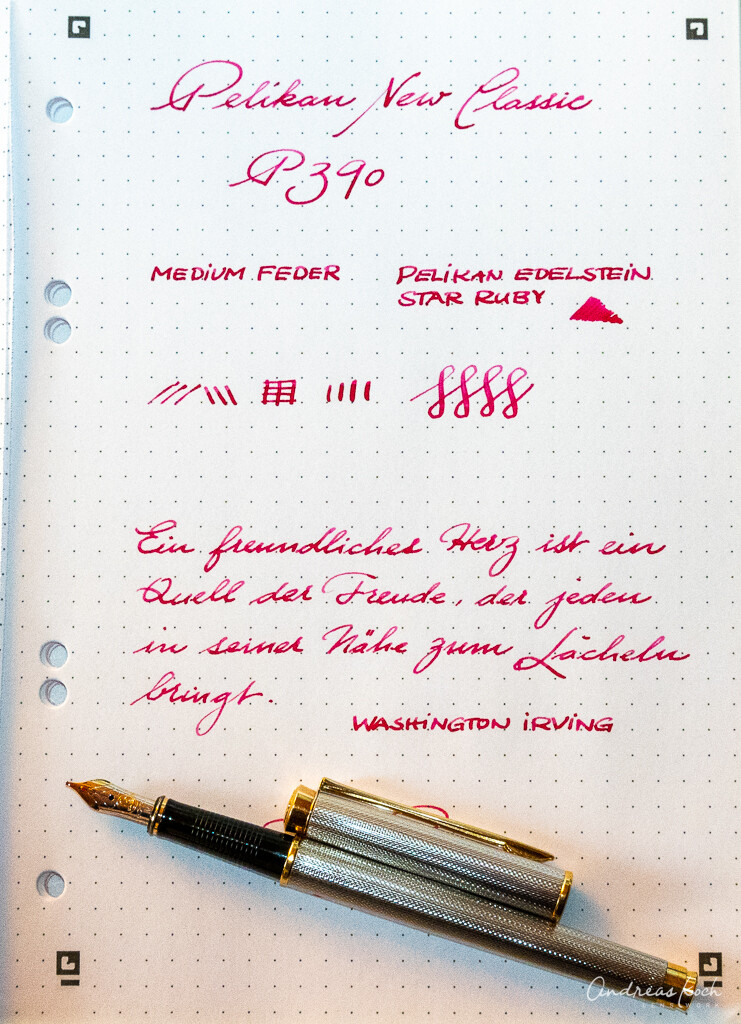 Pelikan New Classic
P390
MEDIUM FEDER
PELIKAN EDELSTEIN
STAR RUBY
Ein freundliches Herz ist ein
Quell der Freude, der jeden
in seiner Nähe zum Lächeln
bringt.
WASHINGTON IRVING
Andreas Koch